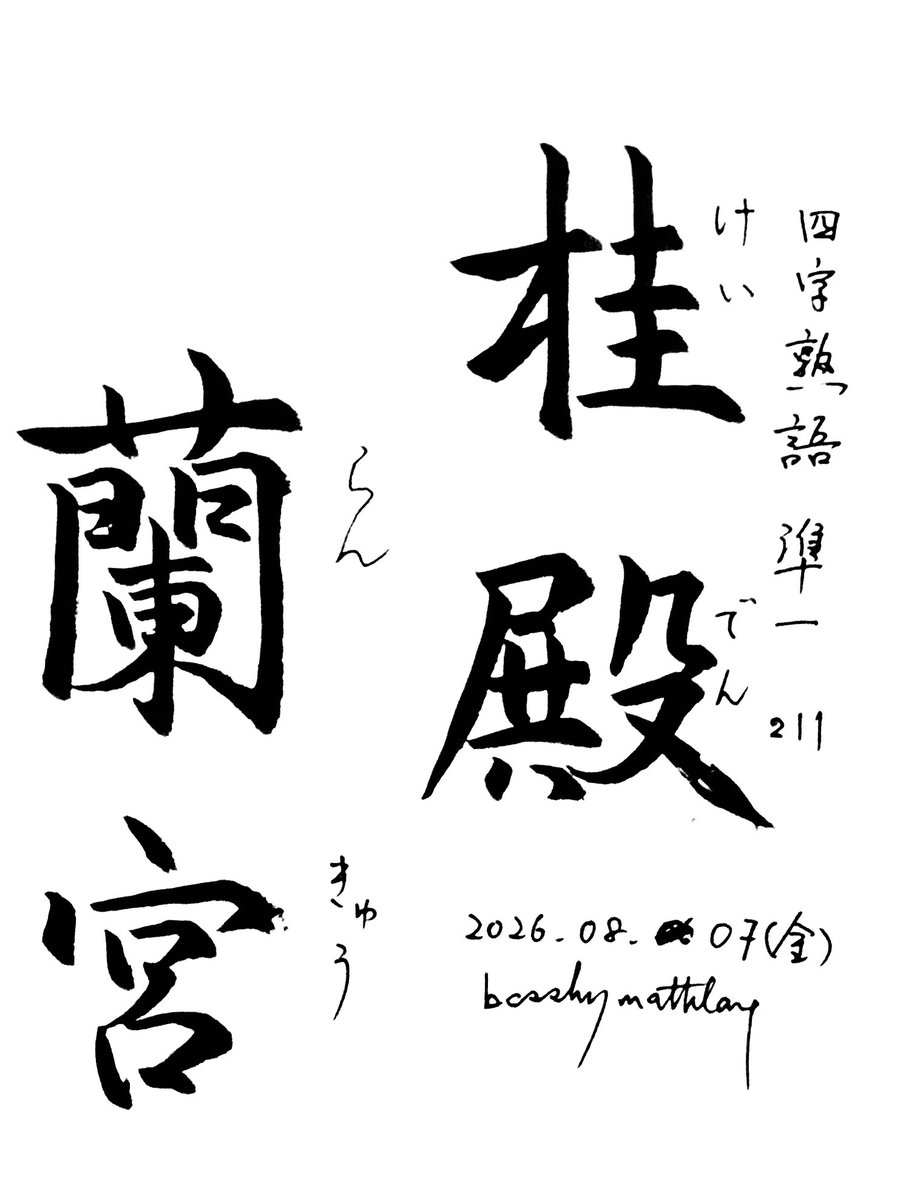 四字熟語 準一 211
桂殿
けいでん
蘭宮
らんきゅう
2026.08.07(金)